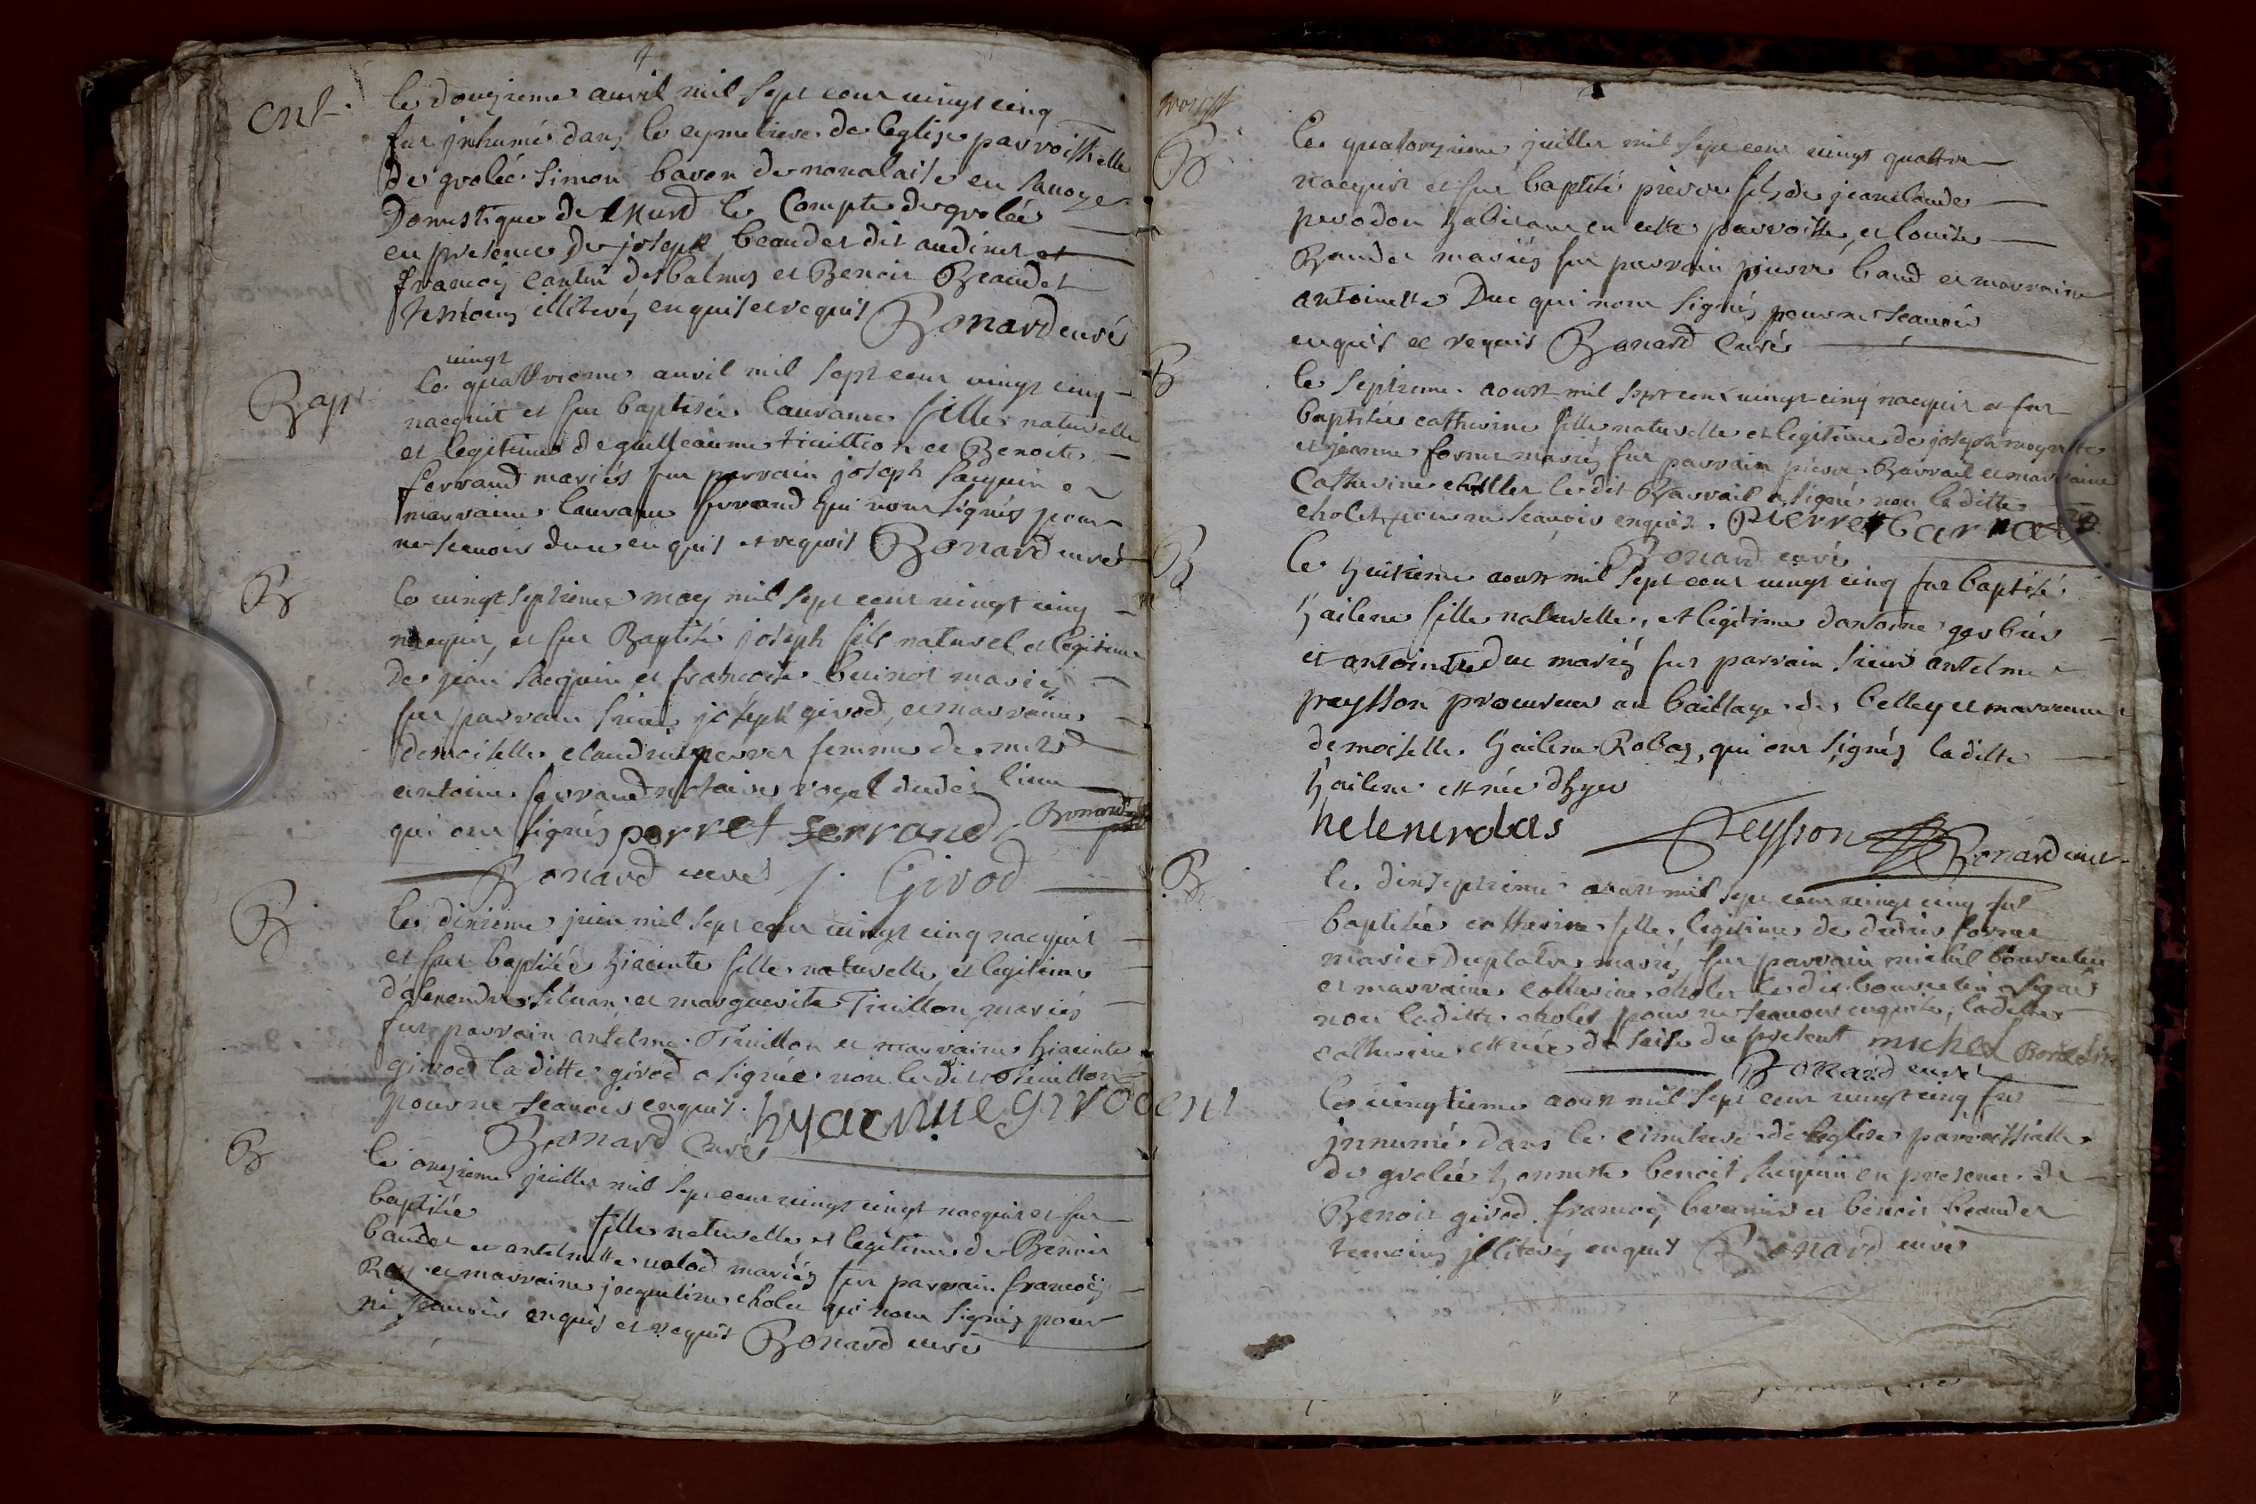 ent.
le douzieme auvril mil sept cent vingt cinq
fut jnhumé dans le cymetiere de leglise parroissielle
de grolée simon baron de noualaise en sauoye
Domestique de le Compte de grolée
en presence de joseph beaudet dit audinet et
francois cantin des balmes et Benoit Beaudet
temoins illiterés enquis et requis Bonard curé
Bapt
vingt
le quattrieme auvril mil sept cent vingt cinq
nacquit et fut baptisée laurance fille naturelle
et legitime de guilleaume tivillion et Benoite
ferrand mariés fut parrain joseph sacquin et
marraine laurance ferrand qui n'ont signés pour
ne scauoir enquis et requis Bonard curé
B
le vingt septieme may mil sept cent vingt cinq
nacquit et fut Baptisé joseph fils naturel et legitime
de jean sacquin et francoise buinot mariés
fut parrain sieur joseph givod, et marraine
demoiselle claudine perret femme de
antoine ferrand nottaire royal dudit lieu
qui ont signés perret ferrand Bonard
Bonard curé j. Givod
B
le dixieme juin mil sept cent vingt cinq nacquit
et fut baptisée hiacinte fille naturelle et legitime
d'alexendre siluan et marguerite Tivillon mariés
fut parrain antelme Tivillon et marraine hiacinte
givod laditte givod a signée non ledit Tivillon
pour ne scauoir enquis. hyacinte givod
Bonard Curé
B
le onzieme juillet mil sept cent vingt cinqt nacquit et fut
baptisée fille naturelle et legitime de Benoit
baudet et antelmette valod mariés fut parrain francois
Rey et marraine jacqueline cholet qui n'ont signés pour
ne scauoir enquis et requis Bonard curé
B
le quatorzieme juillet mil sept cent vingt quattre
nacquit et fut baptisé pierre fils de jeanclaude
perodon habitant en cette parroisse, et louise
Baudet mariés fut parrain pierre baud et marraine
antoinette Duc qui n'ont signés pour ne scauoir
enquis et requis Bonard Curé
B
le septieme aoust mil sept cent vingt cinq nacquit et fut
baptisée catherine fille naturelle et legitime de joseph
et jeanne fornet mariés fut parrain pierre Barrail et marraine
Catherine chollet ledit Barrail a signé non laditte
cholet pour ne scauoir enquis. pierre
Bonard curé
B
le huitieme aoust mil sept cent vingt cinq fut baptisée
hailene fille naturelle, et legitime d'antoine
et antoinette duc mariés fut parrain sieur antelme
peysson procureur au bailliage de belley et marraine
demoiselle hailene Robas, qui ont signés laditte
hailene est née d'hyer
helene robas Peysson Bonard curé
B
le dixseptieme aoust mil sept cent vingt cinq fut
baptisée catherine fille legitime de fornet
marie Duplatre mariés fut parrain michel bourdin
et marraine catherine cholet ledit bourdin signé
non laditte cholet pour ne scauoir enquise, laditte
catherine est née du seize du present michel
Bonard curé
ent
le vingtieme aoust mil sept cent vingt cinq fut
jnnumé dans le cimetiere de leglise parroissialle
de grolée honneste benoit sacquin en presence de
Benoit givod. francois et benoit beaudet
temoins jlliterés enquis Bonard curé